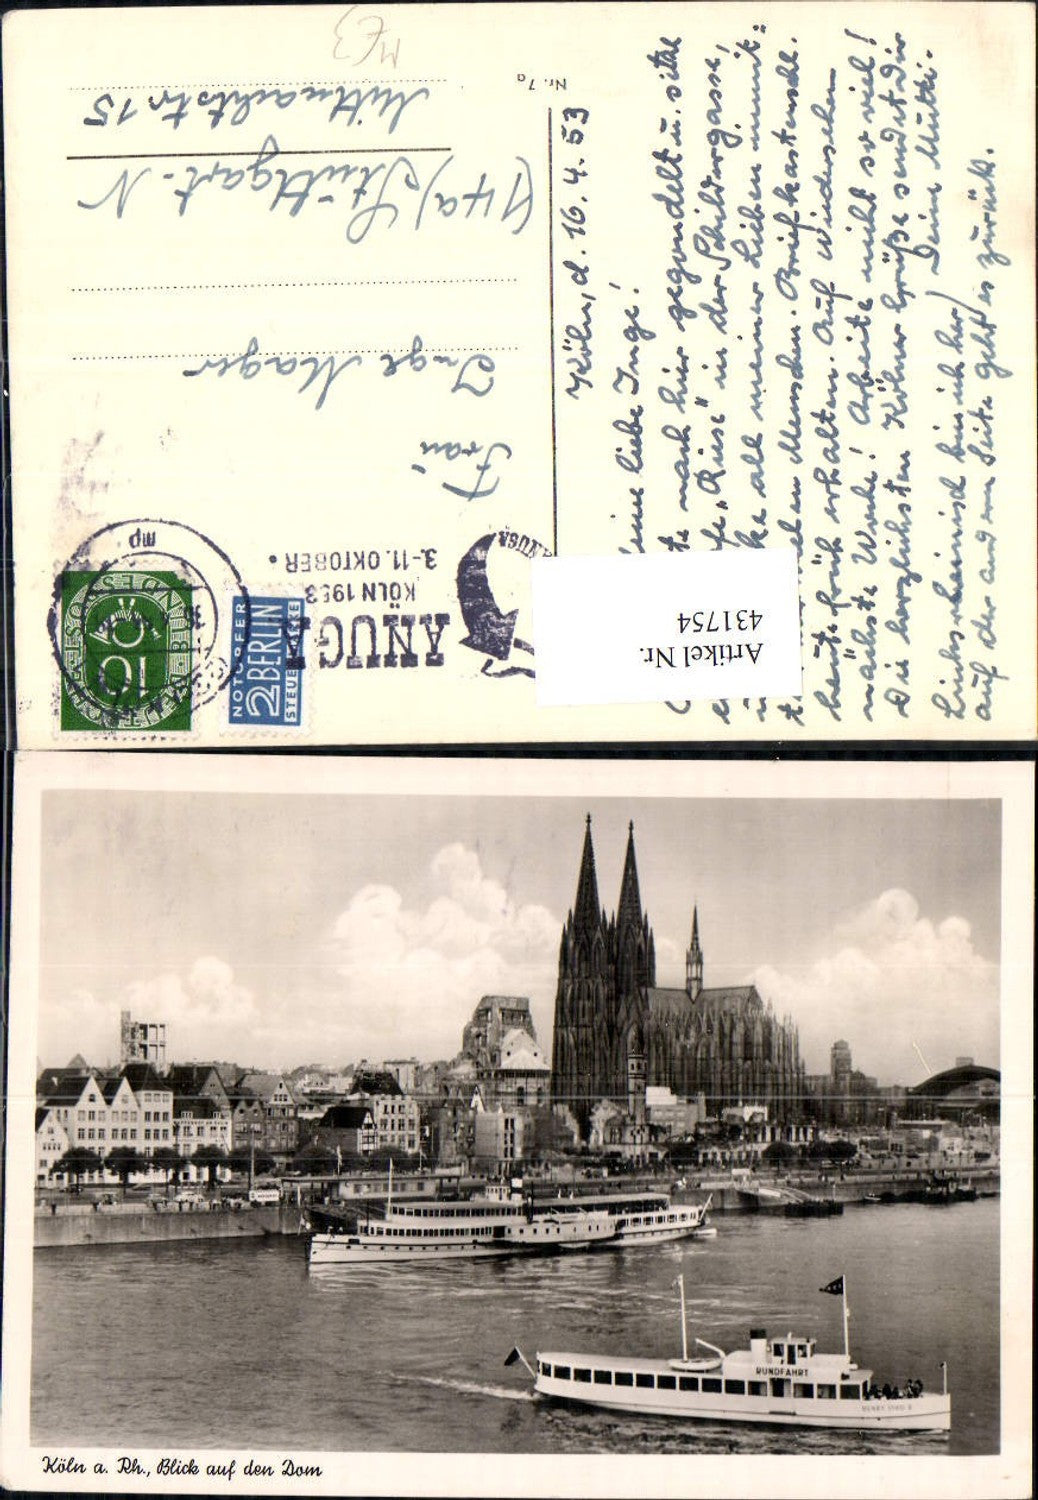 Köln, d. 16.4.53
Meine liebe Inge!
mach hier gegondelt u. sitze
"Riese" in der Schildergasse,
all meiner Lieben munit-
Menschen. Briefkastenschl.
heute früh erhalten. Auf Wiedersehen
nächste Woche! Arbeite nicht so viel!
Die herzlichsten Kölner Grüße sendet Dir
Linksrheinisch bin ich her) Deine Mutti.
auf der andern Seite geht es zurück.
Nr. 7a
Artikel Nr.
431754
ANUGA
ANUGA
KÖLN 1953
3.-11. OKTOBER
mp
NOTOPFER
2 BERLIN
STEUERMARKE
DEUTSCHE BUNDESPOST
10
Frau
Inge Mager
(14a) Stuttgart-N
Mittnachtstr. 15
RUNDFAHRT
Köln a. Rh., Blick auf den Dom